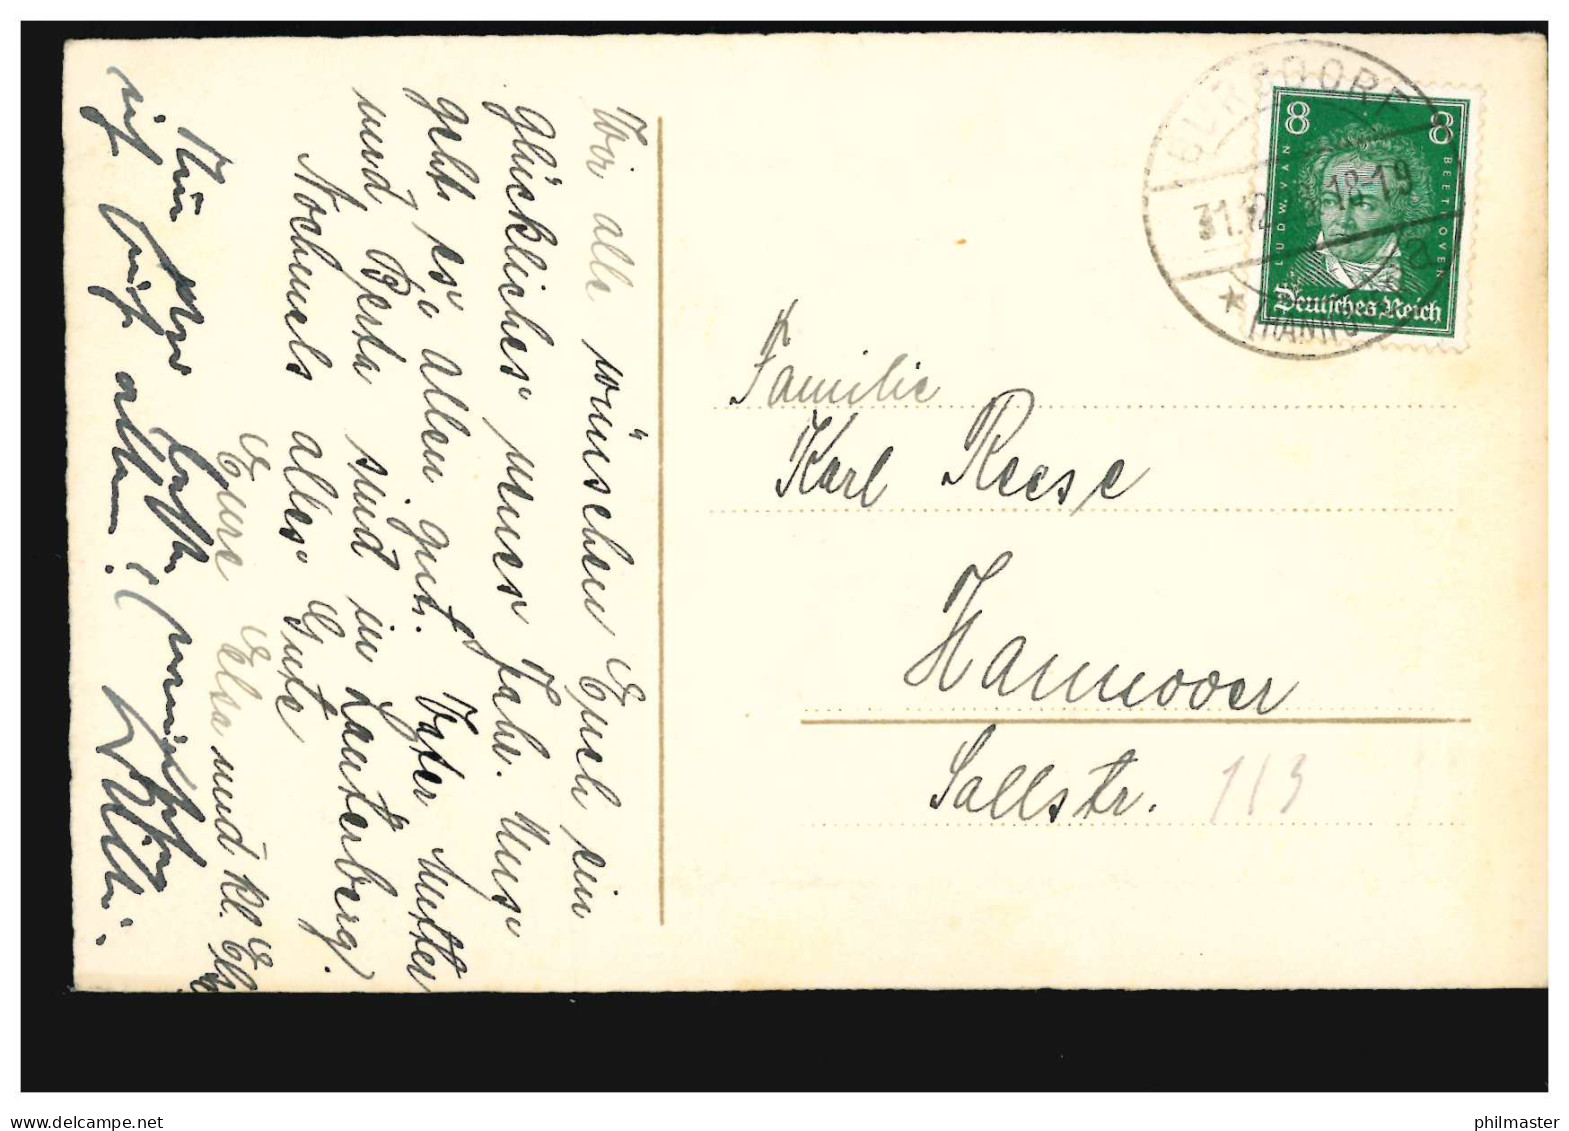 Wir alle wünschen Euch ein
glückliches neues Jahr. Uns
geht es allen gut. Vater Mutter
und Berta sind in Lauterberg.
Nochmals alles Gute
Eure Elsa und kl.
Nun
ich Euch allen!
Willi.
BURGDORF
31.12. 18-19
a
* HANNO
8 8
LUDW. VAN
BEETHOVEN
Deutsches Reich
Familie
Karl Reese
Hannover
Sallstr. 113
www.delcampe.net
philmaster